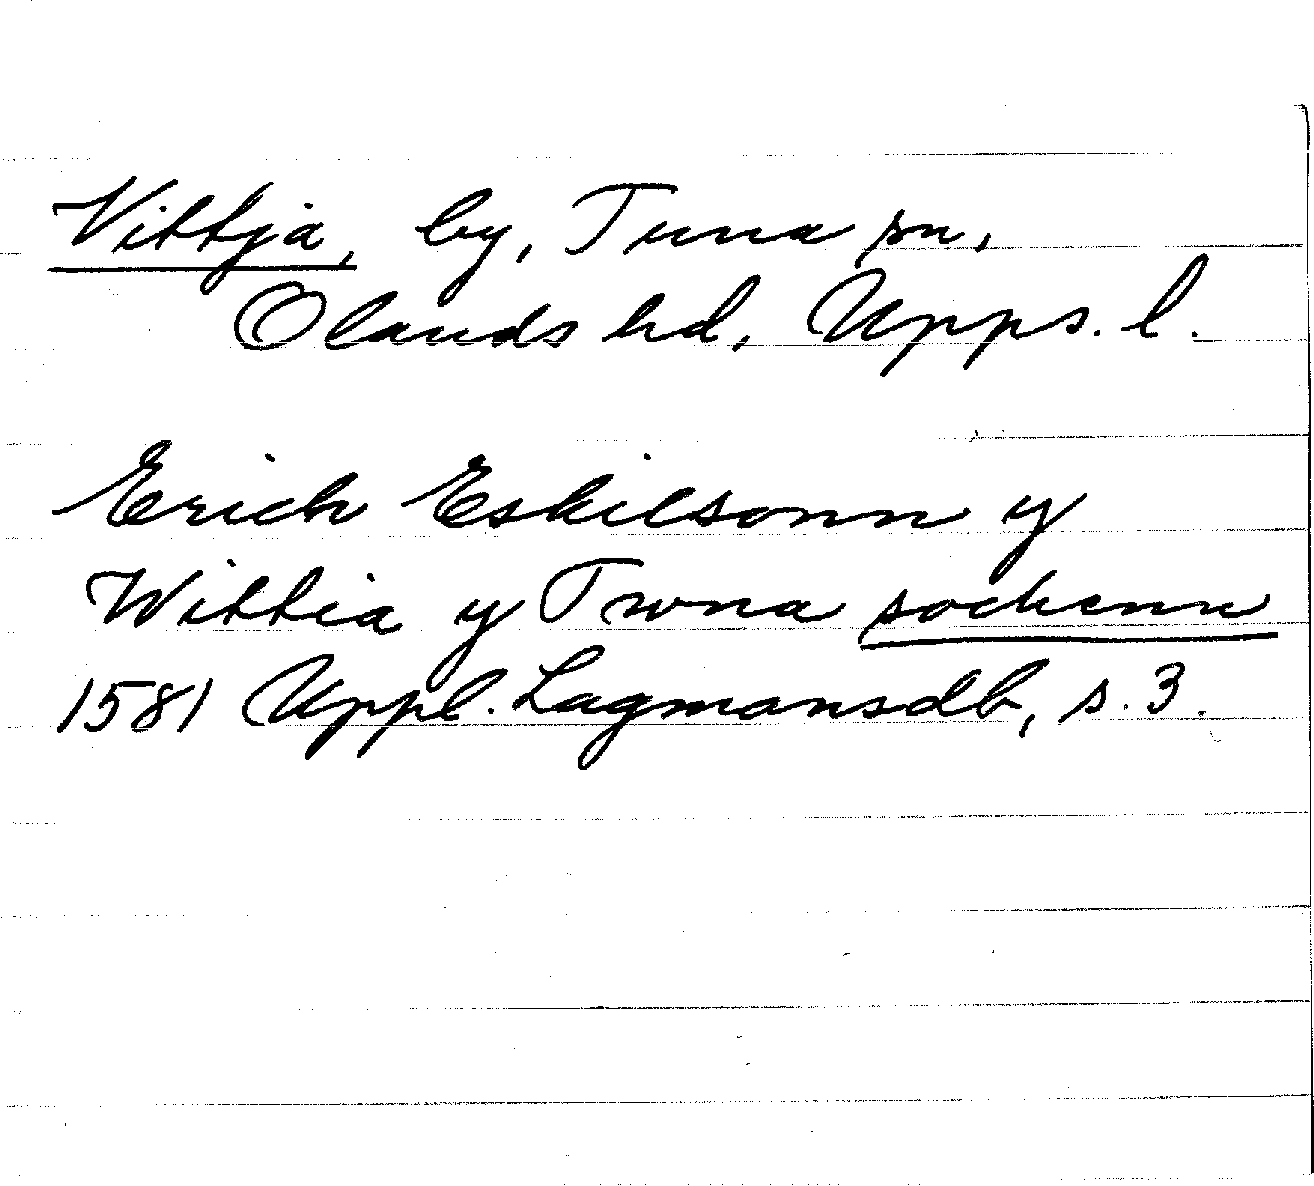 Vittja, by, Tuna sn,
Olands hd, Upps. l.
Erich Eskilsonn y
Wittia y Twna sochenn
1581 Uppl. Lagmansdb, s. 3.